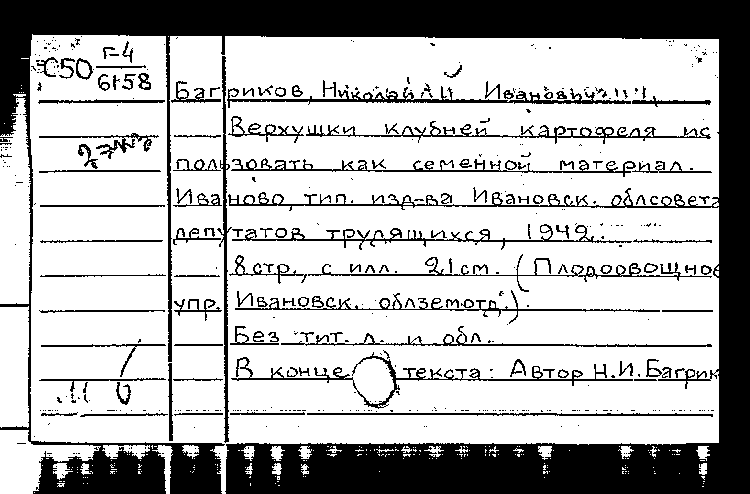 С50 г-4
61-58
Багриков, Николай Иванович
Верхушки клубней картофеля ис
пользовать как семенной материал.
Иваново, тип. изд-ва Ивановск. облсовета
депутатов трудящихся, 1942.
8 стр., с илл. 21 см. (Плодоовощное
упр. Ивановск. облземотд.).
Без тит. л. и обл.
В конце текста: Автор Н.И. Багрик